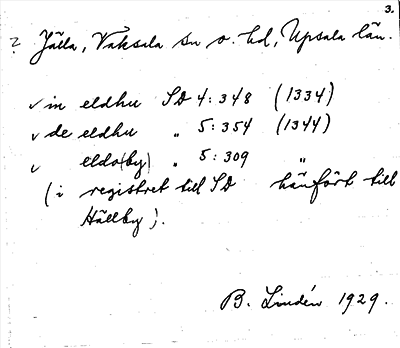 3.
? Jälla, Vaksala sn o. hd, Upsala län.
✓ in eldhu SD 4:348 (1334)
✓ de eldhu " 5:354 (1344)
✓ eldo(by) " 5:309 "
(i registret till SD hänfört till
Hällby).
B. Lindén 1929.